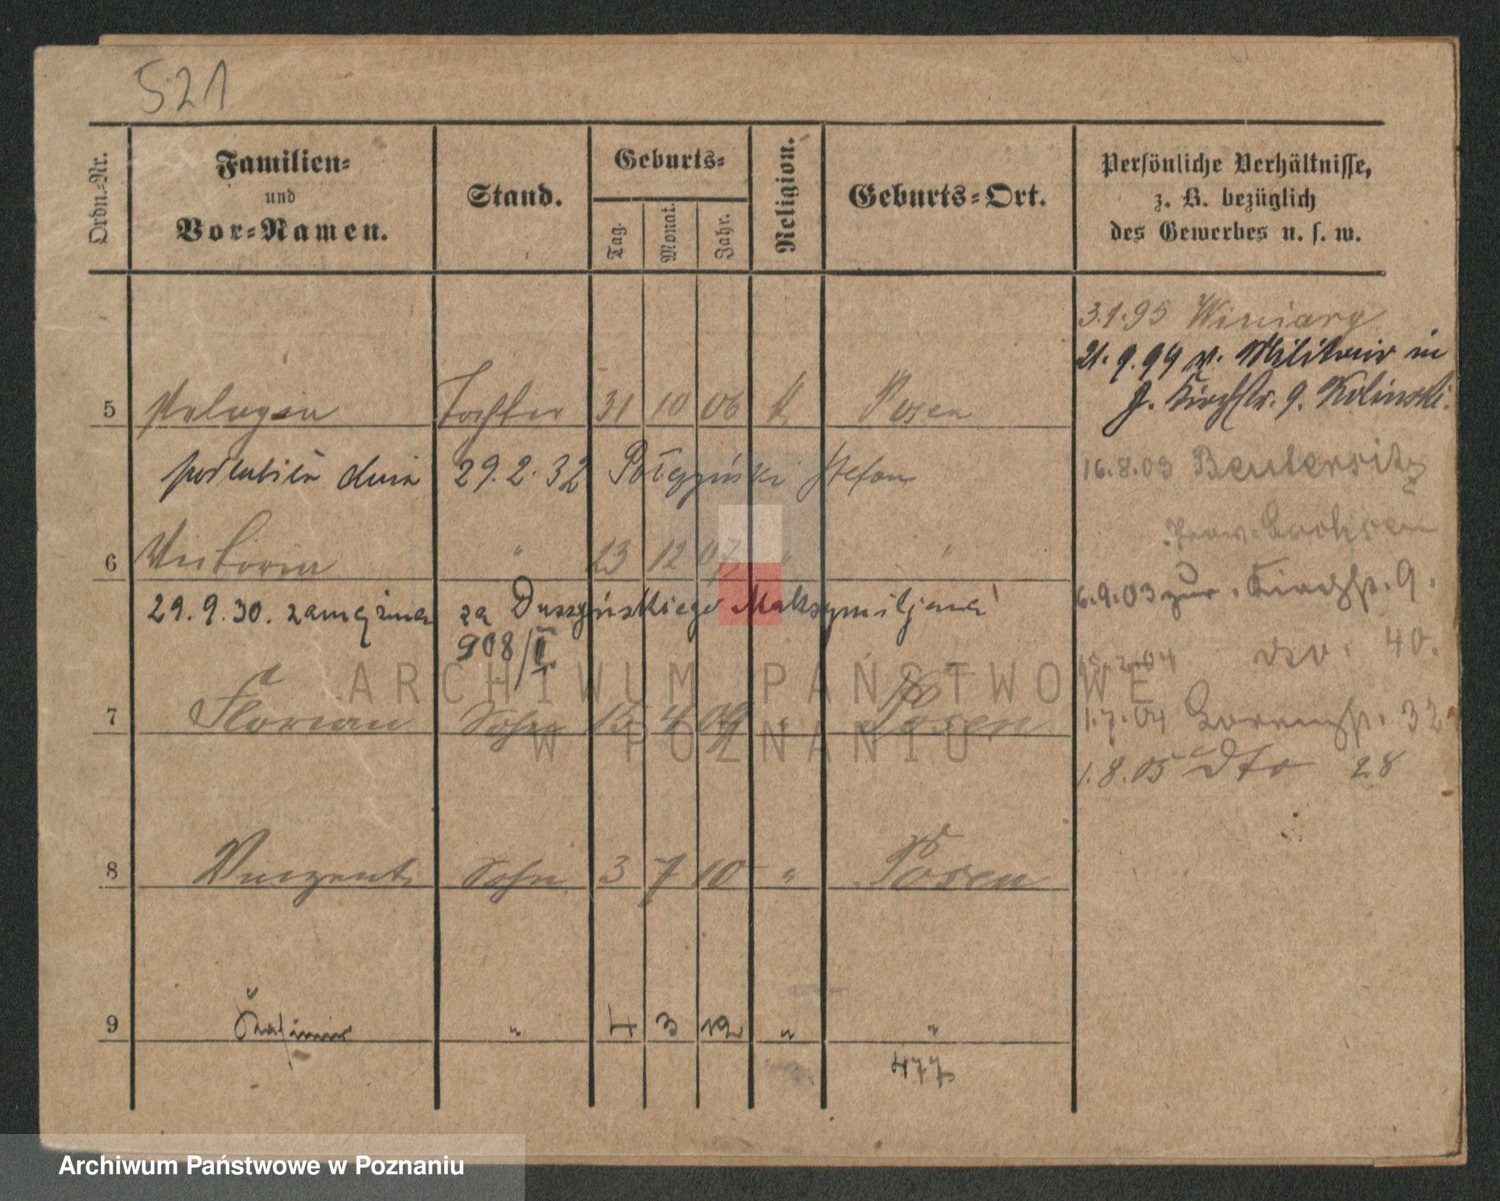 521
Ordn.-Nr.
Familien-
und
Vor-Namen.
Stand.
Geburts-
Tag.
Monat.
Jahr.
Religion.
Geburts-Ort.
Persönliche Verhältnisse,
z. B. bezüglich
des Gewerbes u. s. w.
3.1.95 Winiary
21.9.94 v. Militair in
J. Kirchstr. 9. Kolinski.
5 Pelagia Tochter 31 10 06 k Posen
dnia 29.2.32 Stefan
16.8.03
Prov. Sachsen
6 Victoria " 23 12 07 " "
29.9.30. zamężna za Duszyńskiego Maksymiljana
908/II
6.9.03 zur. Kirchstr. 9.
15.2.04 dto. 40.
7 Florian Sohn 15 4 09 " Posen
1.7.04 Lorenzstr. 32
1.8.05 dto 28
8 Vinzent Sohn 3 7 10 " Posen
9 Kasimir " 4 3 12 " "
477
ARCHIWUM PAŃSTWOWE
W POZNANIU
Archiwum Państwowe w Poznaniu